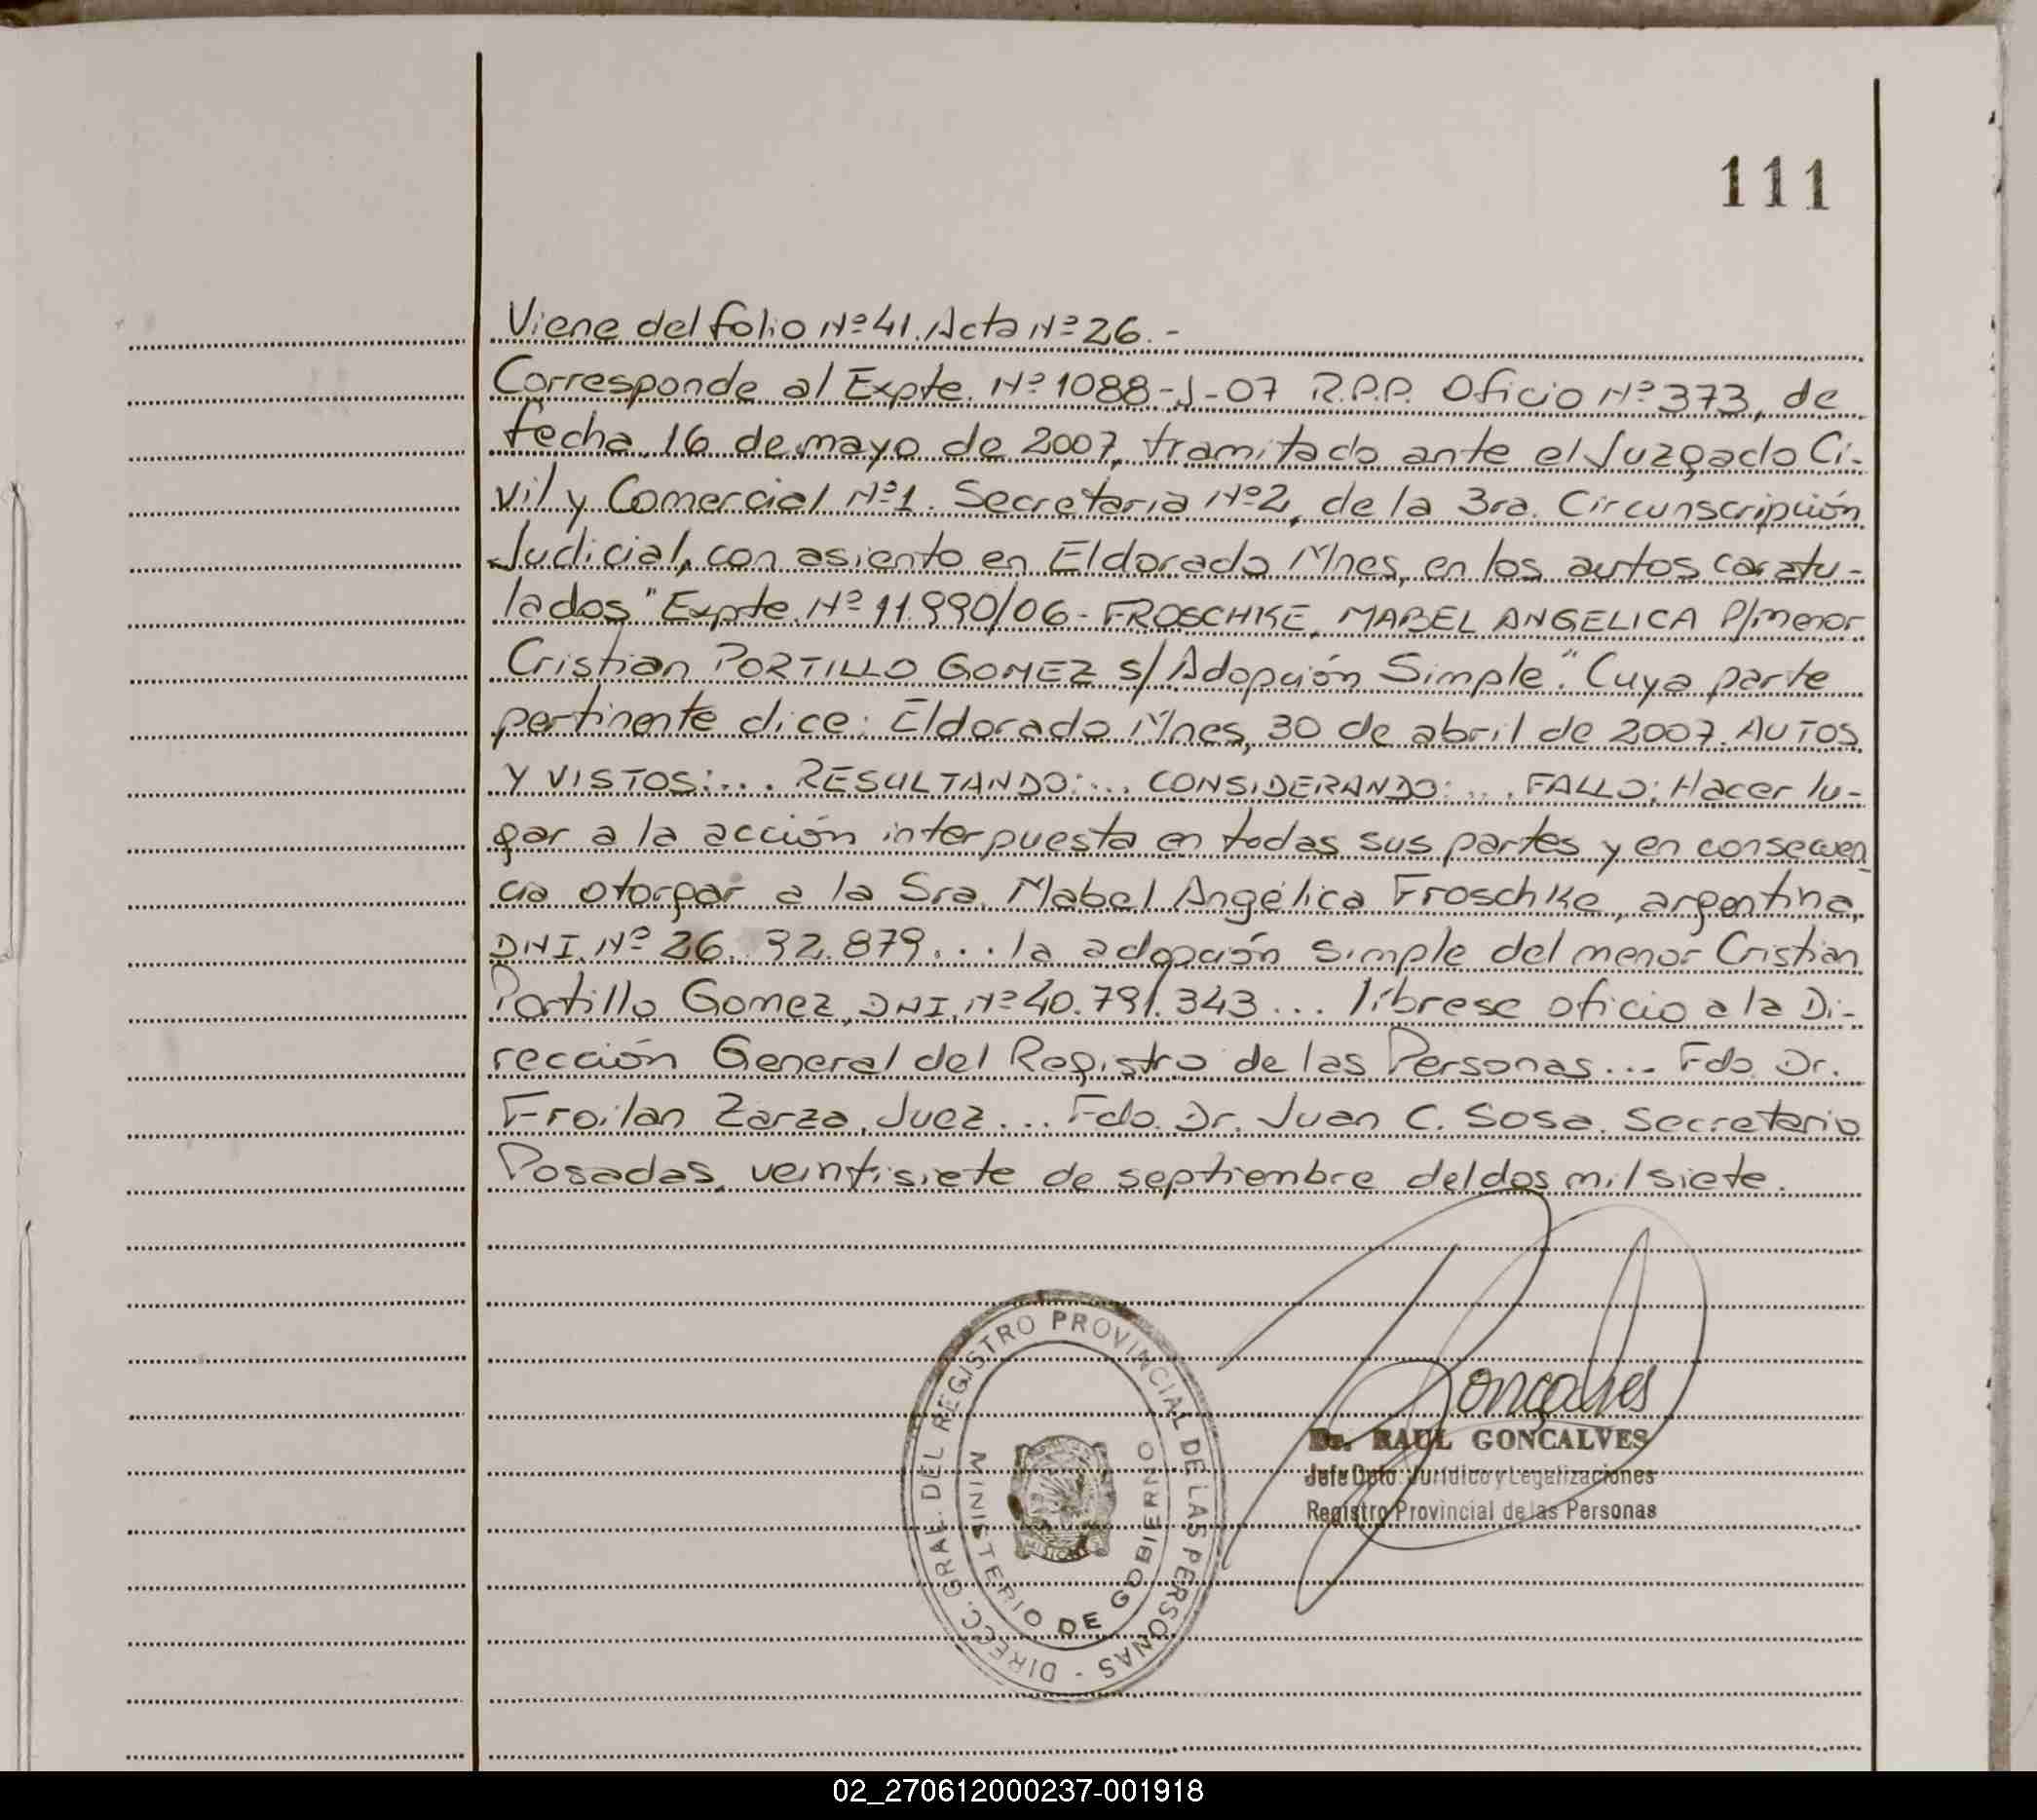 111
Viene del folio Nº 41. Acta Nº 26.-
Corresponde al Expte. Nº 1088-J-07 R.P.P. Oficio Nº 373, de
fecha 16 de mayo de 2007, tramitado ante el Juzgado Ci-
vil y Comercial Nº 1. Secretaria Nº 2, de la 3ra. Circunscripción
Judicial, con asiento en Eldorado Mnes, en los autos caratu-
lados "Expte. Nº 11.990/06- FROSCHKE, MABEL ANGELICA P/menor
Cristian PORTILLO GOMEZ S/Adopción Simple". Cuya parte
pertinente dice: Eldorado Mnes, 30 de abril de 2007. AUTOS
Y VISTOS:... RESULTANDO:... CONSIDERANDO:... FALLO: Hacer lu-
gar a la acción interpuesta en todas sus partes y en consecuen
cia otorgar a la Sra. Mabel Angélica Froschke, argentina,
DNI. Nº 26. 32.879... la adopción simple del menor Cristian
Portillo Gomez, DNI. Nº 40.791.343... líbrese oficio a la Di-
rección General del Registro de las Personas... Fdo. Dr.
Froilan Zarza, Juez... Fdo. Dr. Juan C. Sosa. Secretario
Posadas, veintisiete de septiembre del dos mil siete.
DIRECC. GRAL. DEL REGISTRO PROVINCIAL DE LAS PERSONAS -
MINISTERIO DE GOBIERNO
Goncalves
Dr. RAUL GONCALVES
Jefe Dpto. Jurídico y Legalizaciones
Registro Provincial de las Personas
02_270612000237-001918